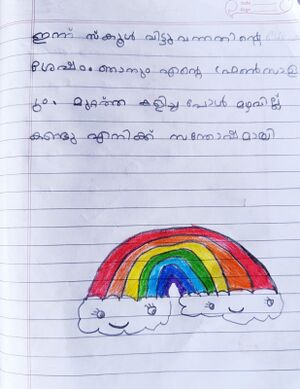 ഇന്ന് സ്കൂൾ വിട്ടു വന്നതിന്റെ
ശേഷം ഞാനും എന്റെ ഫ്രൺസാളി
ും. മുറ്റത്ത കളിച്ച പോൾ മഴവില്ല്
കണ്ടു എനിക്ക് സന്തോഷമായി